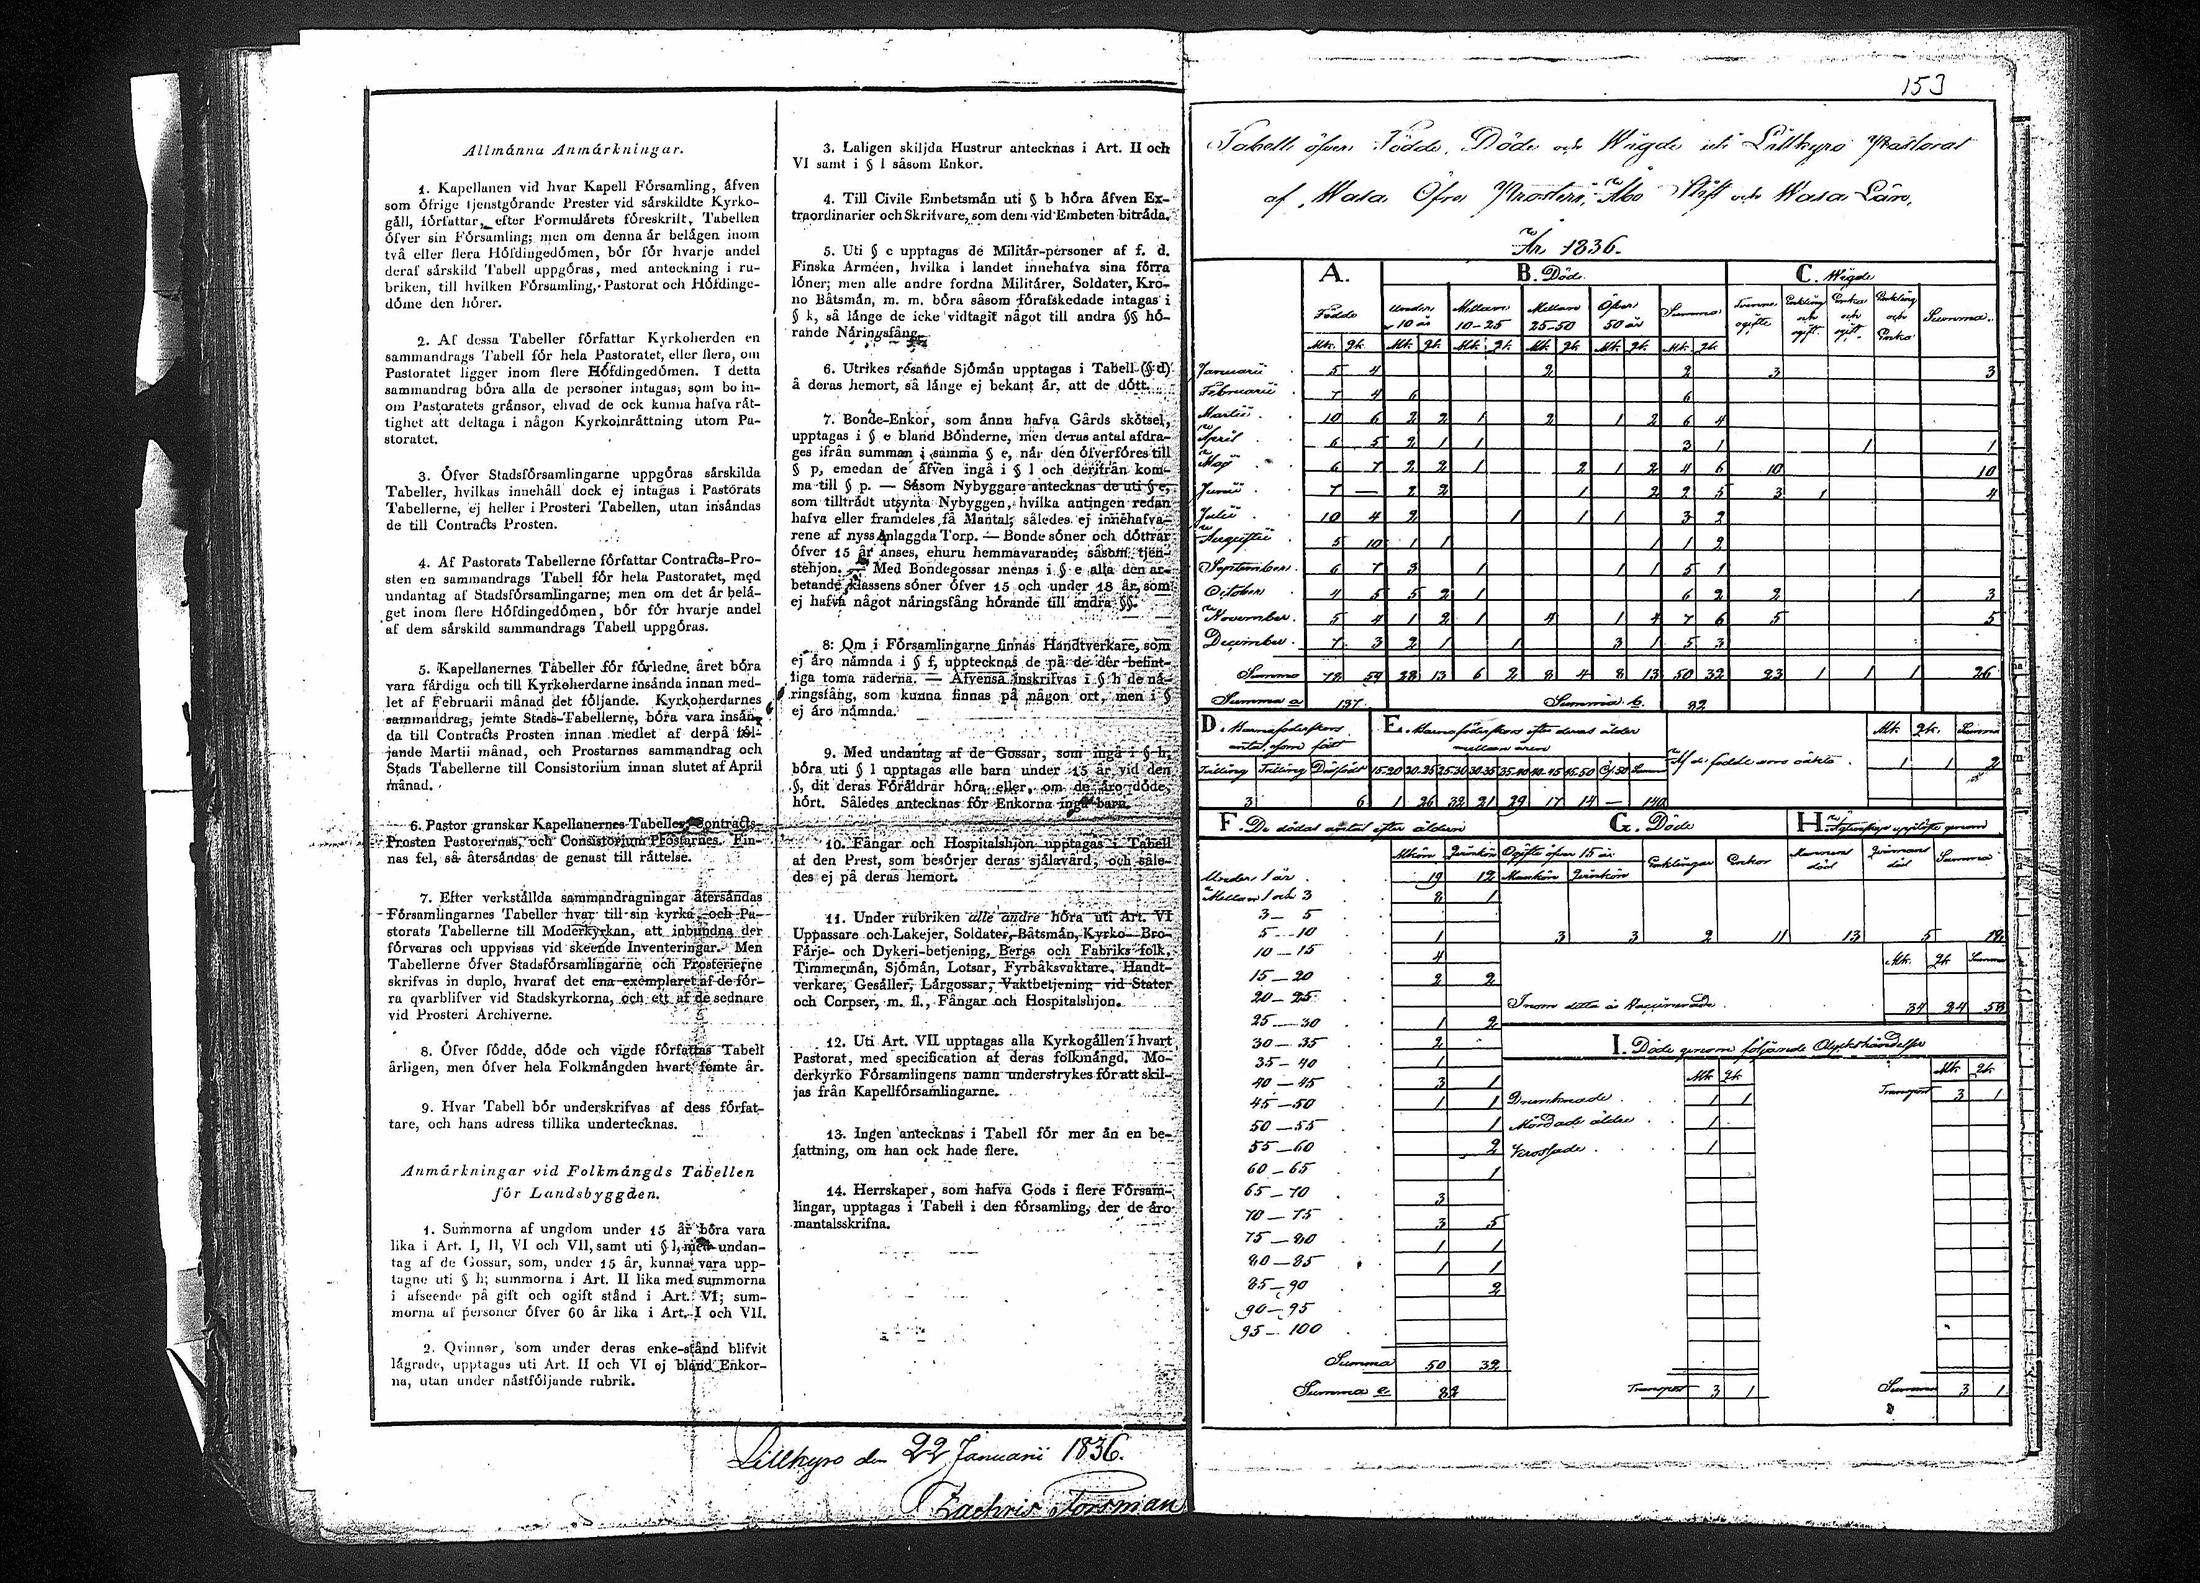 Allmänna Anmärkningar.
1. Kapellanen vid hvar Kapell Församling, äfven
som öfrige tjenstgörande Prester vid särskildte Kyrko-
gäll, författar, efter Formulärets föreskrift, Tabellen
öfver sin Församling; men om denna är belägen inom
två eller flera Höfdingedömen, bör för hvarje andel
deraf särskild Tabell uppgöras, med anteckning i ru-
briken, till hvilken Församling, Pastorat och Höfdinge-
döme den hörer.
2. Af dessa Tabeller författar Kyrkoherden en
sammandrags Tabell för hela Pastoratet, eller flera, om
Pastoratet ligger inom flere Höfdingedömen. I detta
sammandrag böra alla de personer intagas, som bo in-
om Pastoratets gränsor, ehvad de ock kunna hafva rät-
tighet att deltaga i någon Kyrkoinrättning utom Pa-
storatet.
3. Öfver Stadsförsamlingarne uppgöras särskilda
Tabeller, hvilkas innehåll dock ej intages i Pastorats
Tabellerne, ej heller i Prosteri Tabellen, utan insändas
de till Contracts Prosten.
4. Af Pastorats Tabellerne författar Contracts-Pro-
sten en sammandrags Tabell för hela Pastoratet, med
undantag af Stadsförsamlingarne; men om det är belä-
get inom flere Höfdingedömen, bör för hvarje andel
af dem särskild sammandrags Tabell uppgöras.
5. Kapellanernes Tabeller för förledne året böra
vara färdiga och till Kyrkoherdarne insända innan med-
let af Februarii månad det följande. Kyrkoherdarnes
sammandrag, jemte Stads-Tabellerne, böra vara insän-
da till Contracts Prosten innan medlet af derpå föl-
jande Martii månad, och Prostarnes sammandrag och
Stads Tabellerne till Consistorium innan slutet af April
månad.
6. Pastor granskar Kapellanernes Tabeller, Contracts-
Prosten Pastorernas, och Consistorium Prostarnes. Fin-
nas fel, så återsändas de genast till rättelse.
7. Efter verkställda sammandragningar återsändas
Församlingarnes Tabeller hvar till sin kyrka, och Pa-
storats Tabellerne till Moderkyrkan, att inbundna der
förvaras och uppvisas vid skeende Inventeringar. Men
Tabellerne öfver Stadsförsamlingarne och Prosterierne
skrifvas in duplo, hvaraf det ena exemplaret af de för-
ra qvarblifver vid Stadskyrkorna, och ett af de sednare
vid Prosteri Archiverne.
8. Öfver födde, döde och vigde författas Tabell
årligen, men öfver hela Folkmängden hvart femte år.
9. Hvar Tabell bör underskrifvas af dess förfat-
tare, och hans adress tillika undertecknas.
Anmärkningar vid Folkmängds Tabellen
för Landsbyggden.
1. Summorna af ungdom under 15 år böra vara
lika i Art. I, II, VI och VII, samt uti § l, med undan-
tag af de Gossar, som, under 15 år, kunna vara upp-
tagne uti § h; summorna i Art. II lika med summorna
i afseende på gift och ogift stånd i Art. VI; sum-
morna af personer öfver 60 år lika i Art. I och VII.
2. Qvinnor, som under deras enke-stånd blifvit
lägrade, upptagas uti Art. II och VI ej bland Enkor-
na, utan under nästföljande rubrik.
3. Laligen skiljda Hustrur antecknas i Art. II och
VI samt i § l såsom Enkor.
4. Till Civile Embetsmän uti § b höra äfven Ex-
traordinarier och Skrifvare, som dem vid Embeten biträda.
5. Uti § c upptagas de Militär-personer af f. d.
Finska Armeen, hvilka i landet innehafva sina förra
löner; men alle andre fordna Militärer, Soldater, Kro-
no Båtsmän, m. m. böra såsom förafskedade intagas i
§ k, så länge de icke vidtagit något till andra §§ hö-
rande Näringsfång.
6. Utrikes resande Sjömän upptagas i Tabell (§ d)
å deras hemort, så länge ej bekant är, att de dött.
7. Bonde-Enkor, som ännu hafva Gårds skötsel,
upptagas i § e bland Bönderne, men deras antal afdra-
ges ifrån summan i samma § e, när den öfverföres till
§ p, emedan de äfven ingå i § l och derifrån kom-
ma till § p. — Såsom Nybyggare antecknas de uti § e,
som tillträdt utsynta Nybyggen, hvilka antingen redan
hafva eller framdeles få Mantal; således ej innehafva-
rene af nyss anlaggda Torp. — Bonde söner och döttrar
öfver 15 år anses, ehuru hemmavarande, såsom tjen-
stehjon. — Med Bondegossar menas i § e alla den ar-
betande klassens söner öfver 15 och under 18 år, som
ej hafva något näringsfång hörande till andra §§.
8. Om i Församlingarne finnas Handtverkare, som
ej äro nämnda i § f, upptecknas de på de der befint-
liga toma raderna. — Äfvenså inskrifvas i § h de nä-
ringsfång, som kunna finnas på någon ort, men i §
ej äro nämnda.
9. Med undantag af de Gossar, som ingå i § h,
böra uti § l upptagas alle barn under 15 år vid den
§, dit deras Föräldrar höra eller, om de äro döde,
hört. Således antecknas för Enkorna inga barn.
10. Fångar och Hospitalshjon upptagas i Tabell
af den Prest, som besörjer deras själavård, och såle-
des ej på deras hemort.
11. Under rubriken alle andre höra uti Art. VI
Uppassare och Lakejer, Soldater, Båtsmän, Kyrko- Bro-
Färje- och Dykeri-betjening, Bergs och Fabriks folk,
Timmermän, Sjömän, Lotsar, Fyrbåksvaktare, Handt-
verkare, Gesäller, Lärgossar, Vaktbetjening vid Stater
och Corpser, m. fl., Fångar och Hospitalshjon.
12. Uti Art. VII upptagas alla Kyrkogällen i hvart
Pastorat, med specification af deras folkmängd. Mo-
derkyrko Församlingens namn understrykes för att skil-
jas från Kapellförsamlingarne.
13. Ingen antecknas i Tabell för mer än en be-
fattning, om han ock hade flere.
14. Herrskaper, som hafva Gods i flere Försam-
lingar, upptagas i Tabell i den församling, der de äro
mantalsskrifna.
Lillkyro den 22 Januarii 1836.
Zachris Forsman
153
Tabell öfver Födde, Döde och Wigde uti Lillkyro Pastorat
af Wasa Öfra Prosteri, Åbo Stift och Wasa Län,
År 1836.
A. B. Döde C. Wigde
Födde Under 10 år Mellan 10-25 Mellan 25-50 Öfver 50 år Summa Tvenne ogifte Enkling och ogift Enka och ogift Enkling och Enka Summa
Mk. Qk. Mk. Qk. Mk. Qk. Mk. Qk. Mk. Qk. Mk. Qk.
Januarii 5 4 2 2 3 3
Februarii 7 4 6 6
Martii 10 6 2 2 1 2 1 2 6 4
April 6 5 2 1 1 3 1 1 1
Maj 6 7 2 2 1 2 1 2 4 6 10 10
Junii 7 — 2 2 1 2 2 5 3 1 4
Julii 10 4 2 1 1 1 3 2
Augustii 5 10 1 1 1 1 2
September 6 7 3 1 1 1 5 1
October 4 5 5 2 1 6 2 2 1 3
November 5 4 1 2 1 4 1 4 7 6 5 5
December 7 3 2 1 1 3 1 5 3
Summa 78 59 28 13 6 2 8 4 8 13 50 32 23 1 1 1 26
Summa a 137 Summa b. 82
D. Barnaföderskors antal, som födt E. Barnaföderskors efter deras ålder mellan åren
Mk. Qk. Summa
Af de födde voro oäkta 1 1 2
Tvilling Trilling Dödfödt 15-20 20-25 25-30 30-35 35-40 40-45 45-50 Öf. 50 Summa
3 6 1 26 32 21 29 17 14 — 140
F. De dödas antal efter åldern G. Döde H. Äktenskap upplöste genom
Mkön Qvinkön Ogifte öfver 15 år Enklingar Enkor Mannens död Qvinnans död Summa
Mankön Qvinkön
3 3 2 11 13 5 18
Under 1 år 19 12
Mellan 1 och 3 8 1
3 — 5
5 — 10 1
10 — 15 4
15 — 20 2 2
20 — 25
25 — 30 1 2
30 — 35 2
35 — 40 1
40 — 45 3 1
45 — 50 1 1
50 — 55 1
55 — 60 2
60 — 65 1
65 — 70 3
70 — 75 3 5
75 — 80 1 1
80 — 85 1 1
85 — 90 2
90 — 95
95 — 100
Summa 50 32
Summa a 82
Mk. Qk. Summa
Inom detta år Vaccinerade 34 24 58
I. Döde genom följande Olyckshändelser
Mk. Qk. Mk. Qk.
Drunknade 1 1 Transport 3 1
Mördade äldre 1
Krossade 1
Transport 3 1 Summa 3 1